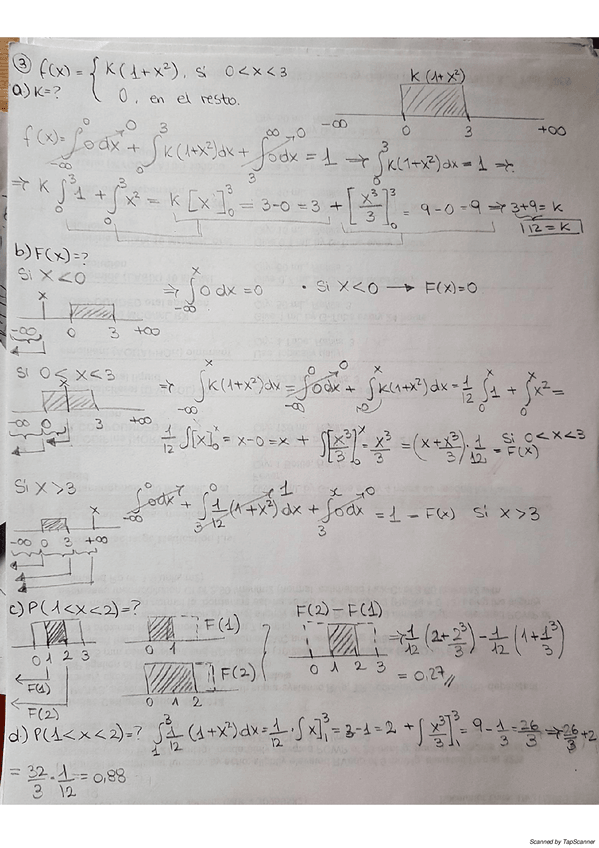 ③ f(x) = { K(1+x²), si 0<x<3
K(1+x²)
a) K=? 0, en el resto.
-∞ 0 3 +∞
f(x) = ∫_{-∞}^{0} 0dx → 0 + ∫_{0}^{3} K(1+x²)dx + ∫_{3}^{∞} 0dx → 0 = 1 → ∫_{0}^{3} K(1+x²)dx = 1 ⇒
⇒ K ∫_{0}^{3} 1 + ∫_{0}^{3} x² = K [x]_{0}^{3} = 3-0 = 3 + [x³/3]_{0}^{3} = 9-0 = 9 ⇒ 3+9=K
12 = K
b) F(x)=?
Si x<0
⇒ ∫_{-∞}^{x} 0 dx = 0 · Si x<0 → F(x)=0
x
-∞ 0 3 +∞
Si 0<x<3
⇒ ∫_{-∞}^{x} K(1+x²)dx = ∫_{-∞}^{0} 0dx → 0 + ∫_{0}^{x} K(1+x²)dx = 1/12 ∫_{0}^{x} 1 + ∫_{0}^{x} x² =
x
-∞ 0 3 +∞
1/12 ∫[x]_{0}^{x} = x-0 = x + ∫[x³/3]_{0}^{x} = x³/3 = (x+x³/3)·1/12 = Si 0<x<3 F(x)
Si x>3
∫_{-∞}^{0} 0dx + ∫_{3}^{0} 1/12 (1+x²)dx → 1 + ∫_{3}^{x} 0dx → 0 = 1 - F(x) Si x>3
x
-∞ 0 3 +∞
c) P(1<x<2)=?
F(2)-F(1)
0 1 2 3
F(1)
F(2)
0 1
F(1)
0 1 2
F(2)
0 1 2 3
⇒ 1/12 (2+2³/3) - 1/12 (1+1³/3)
= 0,27
d) P(1<x<2)=? ∫_{1}^{3} 1/12 (1+x²)dx = 1/12 · ∫x]_{1}^{3} = 3-1 = 2 + ∫x³/3]_{1}^{3} = 9 - 1/3 = 26/3 ⇒ 26/3 + 2
= 32/3 · 1/12 = 0,88
Scanned by TapScanner